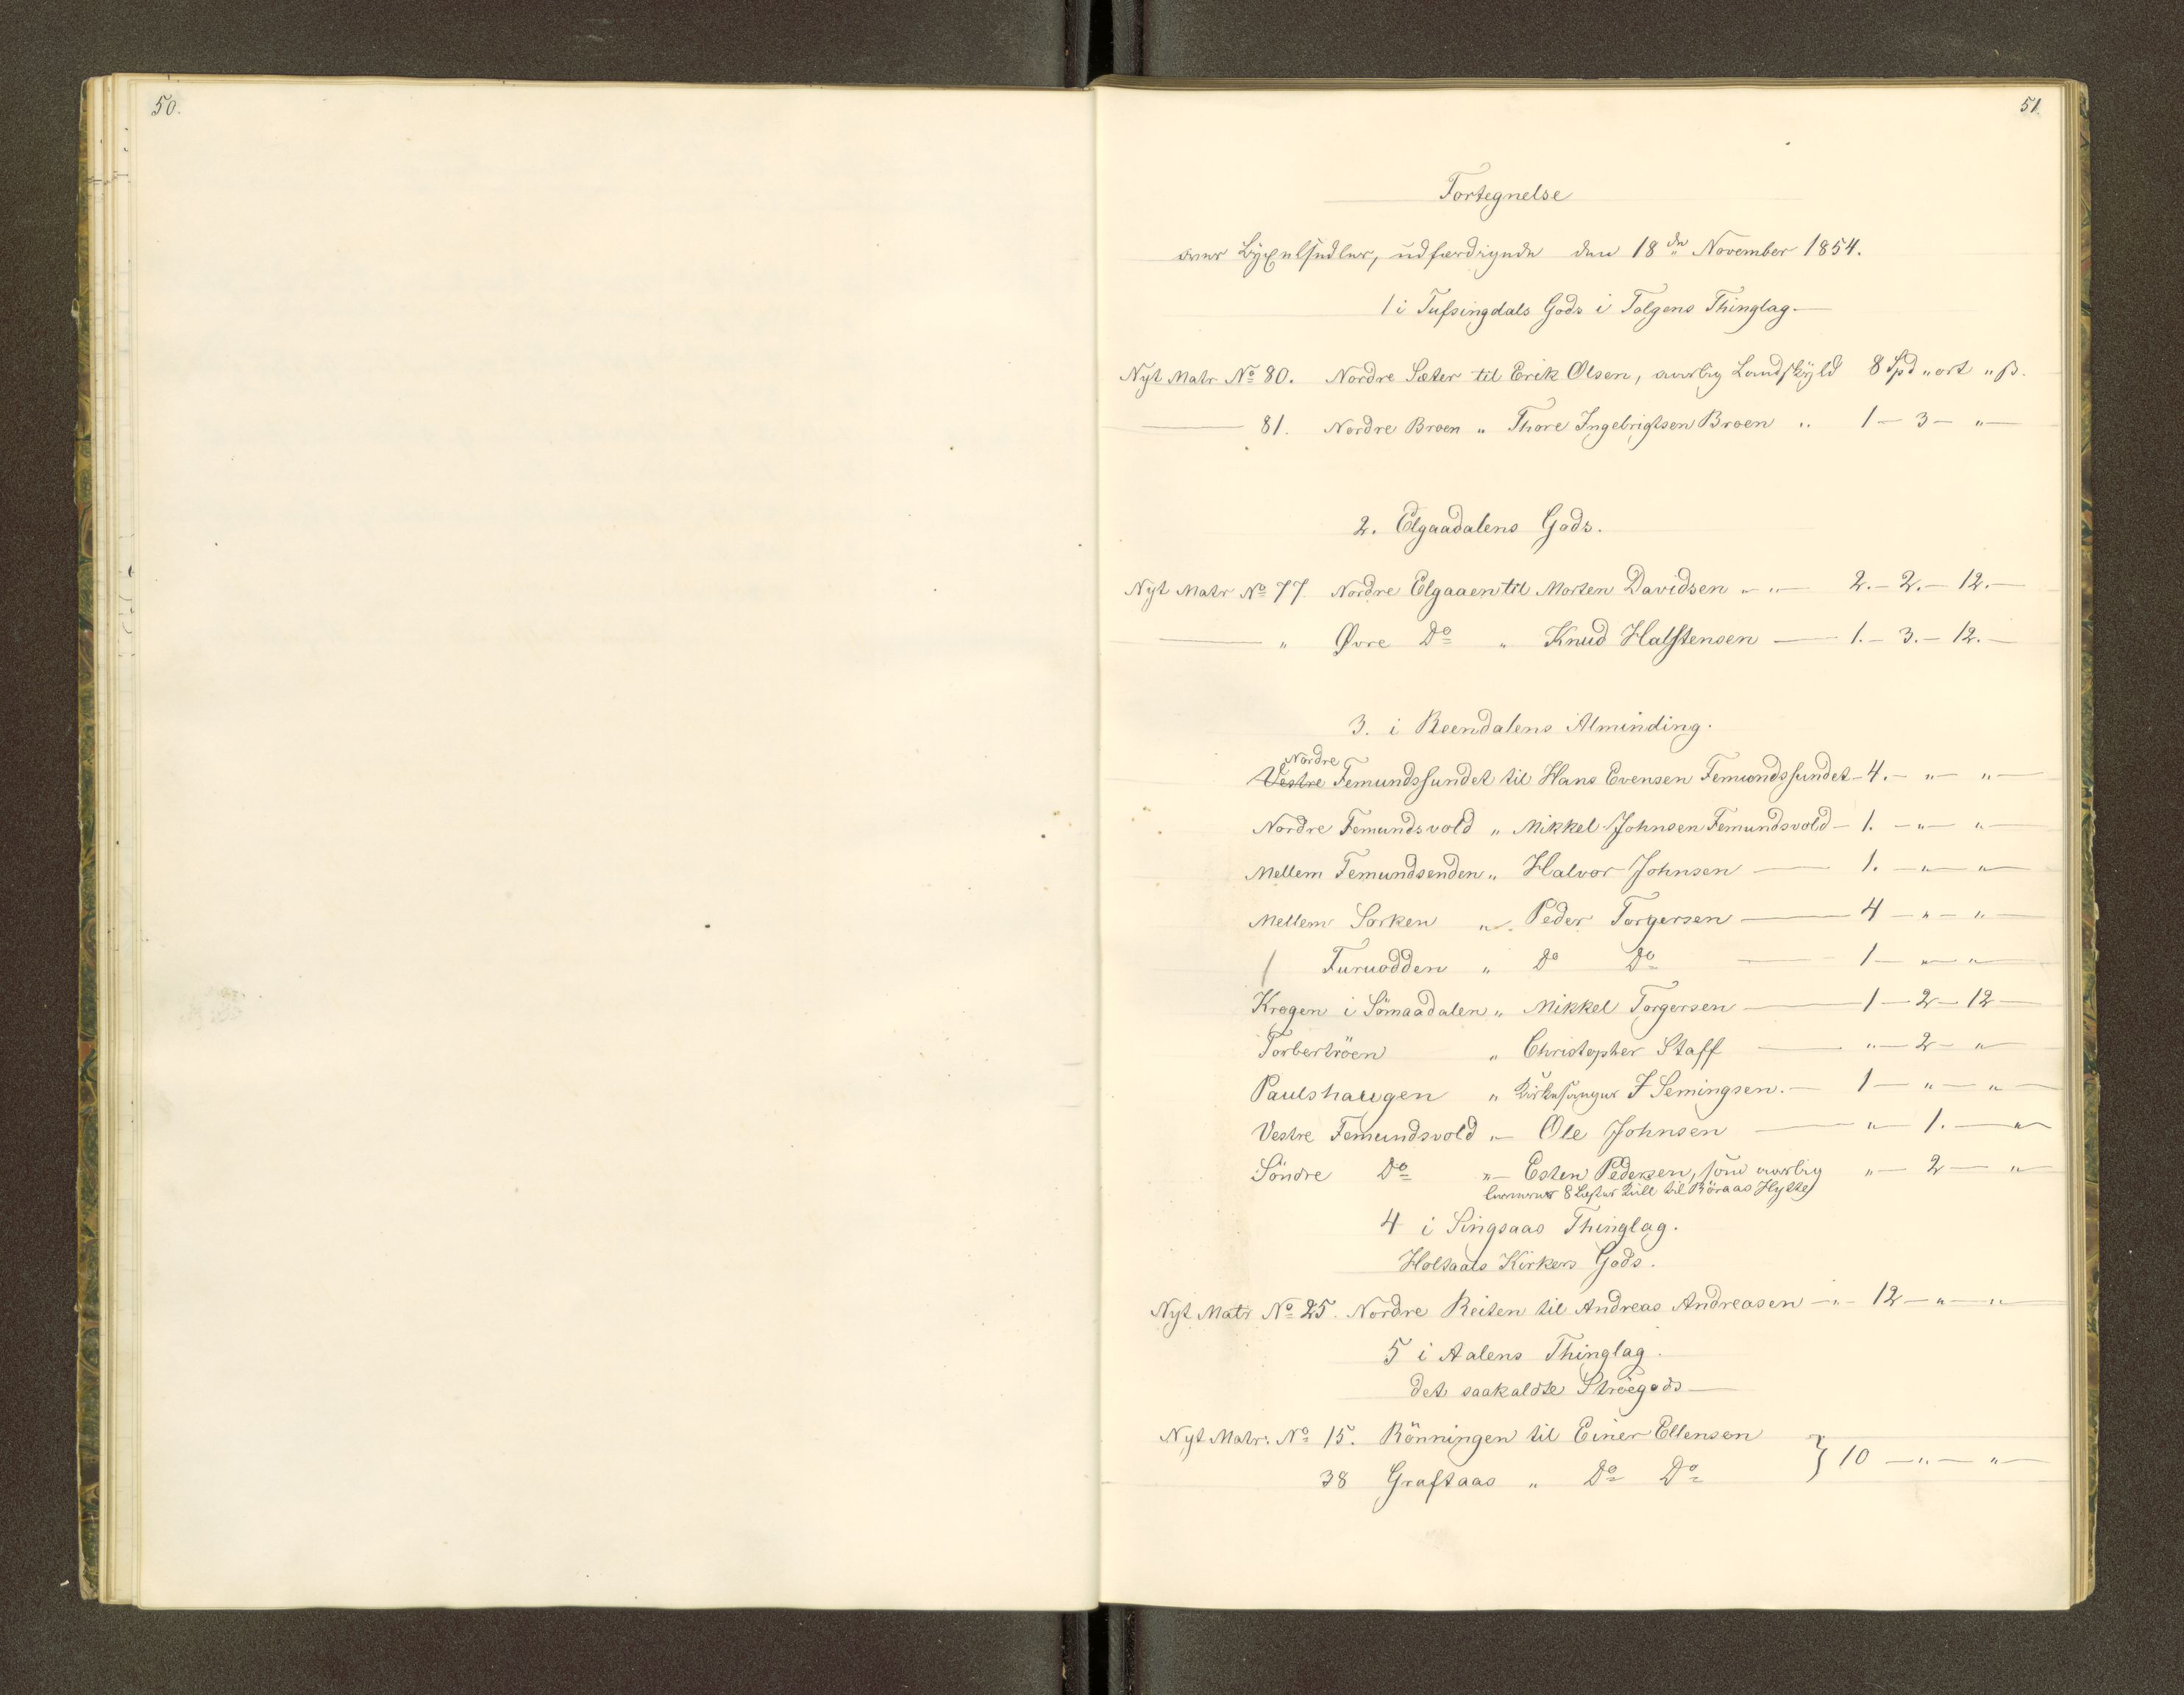 50.
51.
Fortegnelse
over Byxelsedler, udfærdigede den 18de November 1854.
1 i Tufsingdals Gods i Tolgens Thinglag.
Nyt Matr No 80. Nordre Sæter til Erik Olsen, aarlig Landskyld 8 Spd " ort " ß.
— 81. Nordre Broen " Thore Ingebrigtsen Broen " 1 — 3 — " —
2. Elgaadalens Gods.
Nyt Matr No 77 Nordre Elgaaen til Morten Davidsen " " — 2. — 2. — 12. —
— " Øvre Do " Knud Halstensen — 1. — 3. — 12. —
3. i Reendalens Alminding.
Nordre
Vestre Femundssundet til Hans Evensen Femundssundet — 4. — " — " —
Nordre Femundsvold " Mikkel Johnsen Femundsvold — 1. — " — " —
Mellem Femundsenden " Halvor Johnsen — 1. — " — " —
Mellem Sorken " Peder Torgersen — 4 — " — " —
/ Furuodden " Do Do — 1 — " — " —
Krogen i Sömaadalen " Mikkel Torgersen — 1 — 2 — 12 —
Torbertröen " Christopher Staff — " — 2 — " —
Paulshaugen " Kirkesanger J Semingsen. — 1 — " — " —
Vestre Femundsvold " — Ole Johnsen — " — 1. — " —
Söndre Do " — Esten Pedersen, som aarlig " — 2 — " —
leverer 8 Læster Kull til Röraas Hytte
4 i Singsaas Thinglag.
Holtaals Kirkers Gods.
Nyt Matr No 25. Nordre Reiten til Andreas Andreasen — " — 12 — " — " —
5 i Aalens Thinglag.
det saakaldte Ströegods —
Nyt Matr: No 15. Rönningen til Einer Ellensen
38 Graftaas " Do Do } 10 — " — " —